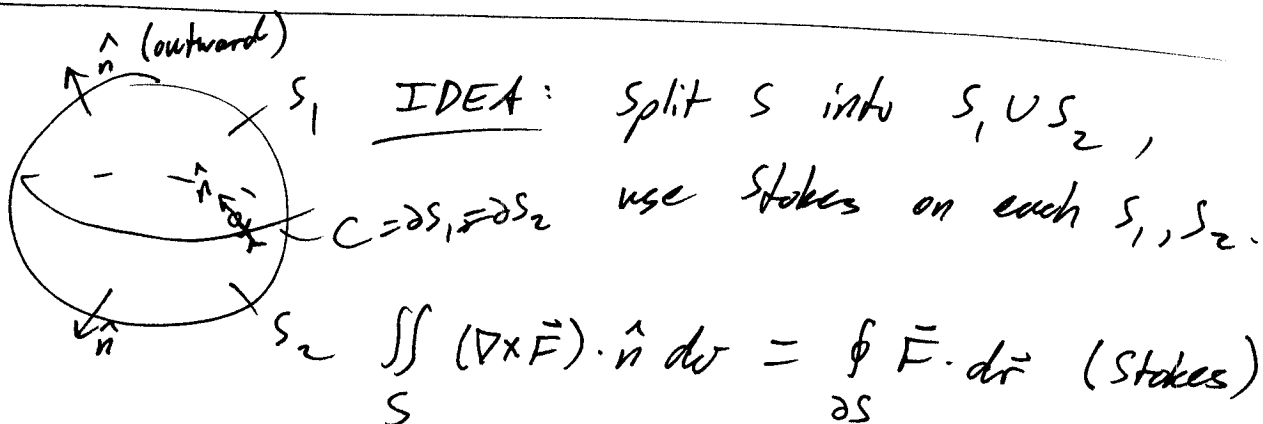 n̂ (outward)
S₁ IDEA: Split S into S₁ ∪ S₂,
n̂
C = ∂S₁ = ∂S₂ use Stokes on each S₁, S₂.
n̂ S₂ ∬_S (∇×F⃗)·n̂ dσ = ∮_∂S F⃗·dr⃗ (Stokes)